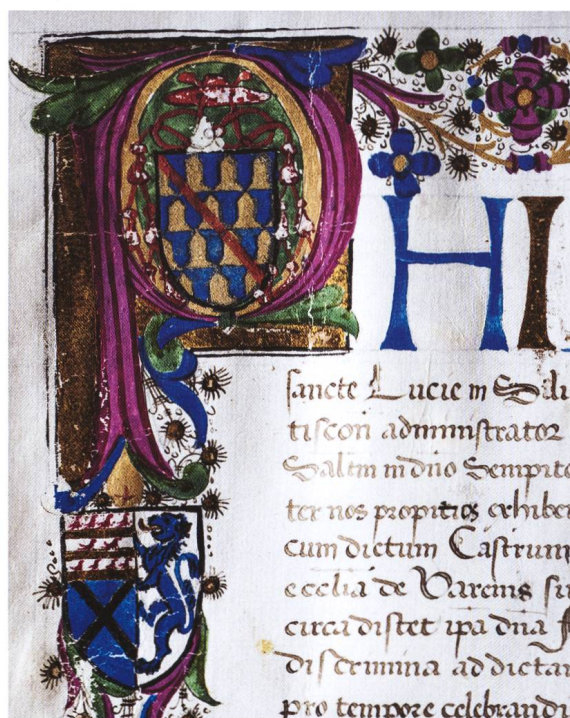 PHI
sancte Lucie in Sili
tiscon administrator
Saltm in dno Sempite
ter nos propitios exhiber
cum dictum Castrum
ecclia de Varcins si
circa distet ipa dna
discrimina ad dictam
pro tempore celebrandi